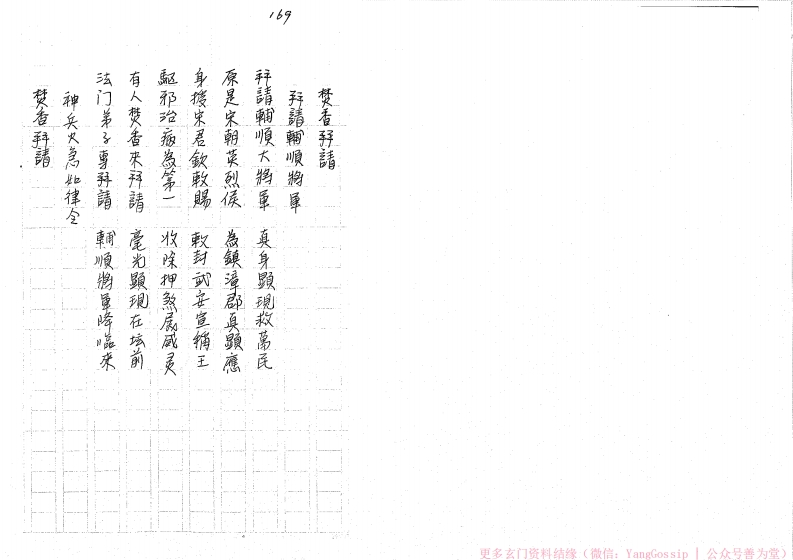 169
焚香拜請
拜請輔順將軍
拜請輔順大將軍 真身顯現救萬民
原是宋朝英烈侯 為鎮漳郡真顯應
身援宋君欽敕賜 敕封武安宣稱王
驅邪治病為第一 收除押煞展威灵
有人焚香來拜請 毫光顯現在坛前
法门弟子專拜請 輔順將軍降臨來
神兵火急如律令
焚香拜請
更多玄门资料结缘（微信：YangGossip | 公众号善为堂）